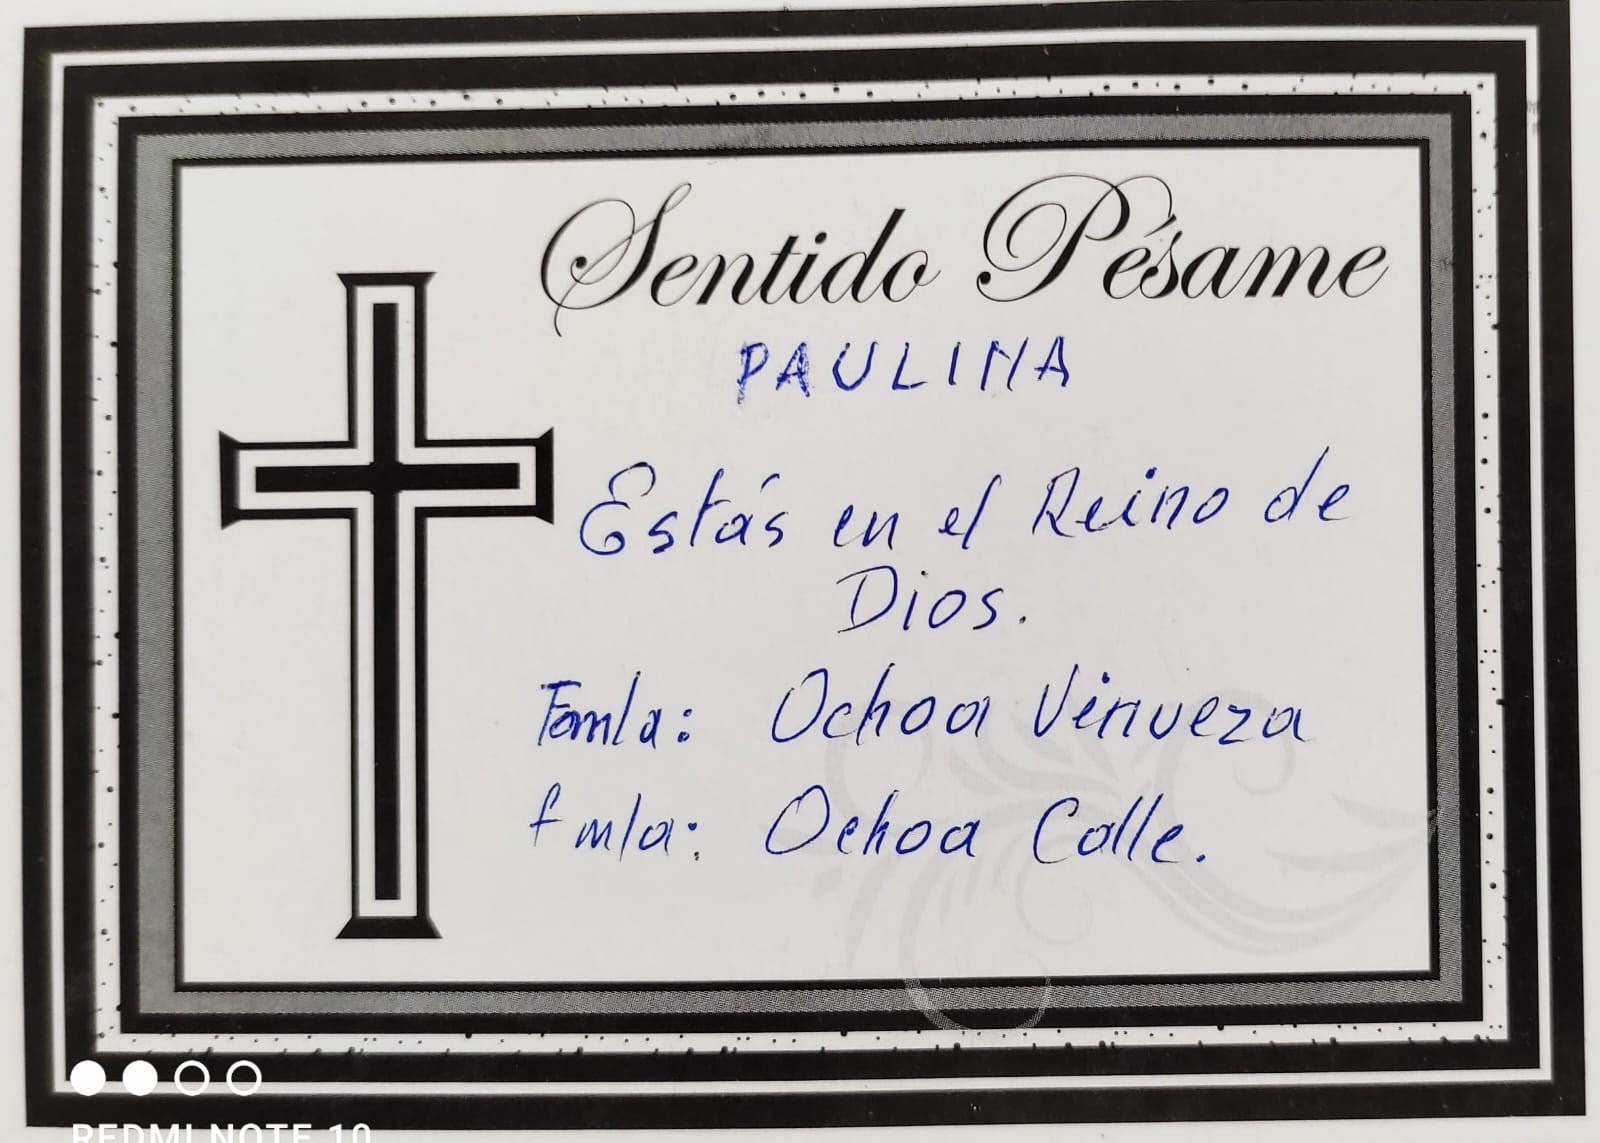 Sentido Pésame
PAULINA
Estás en el Reino de
Dios.
Famla: Ochoa Vinueza
fmla: Ochoa Calle.
REDMI NOTE 10